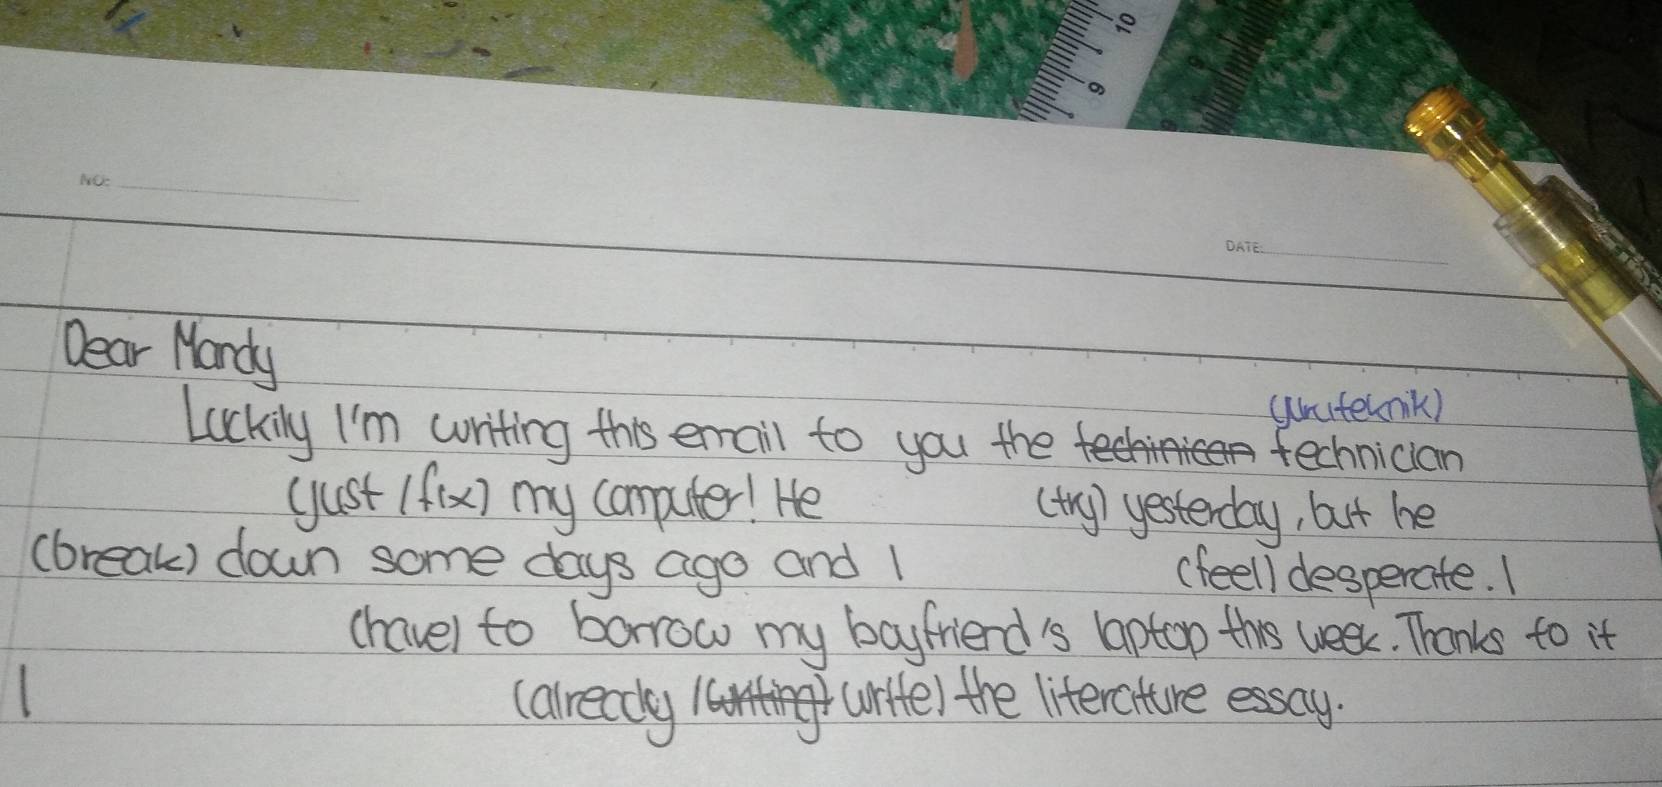 10
9
NO:
DATE:
Dear Mandy
(juruteknik)
Luckily I'm writing this email to you the techinican technician
(just / fix) my computer! He (try) yesterday, but he
(break) down some days ago and I (feel) desperate. I
(have) to borrow my boyfriend's laptop this week. Thanks to it
I (already / writing) write) the literature essay.